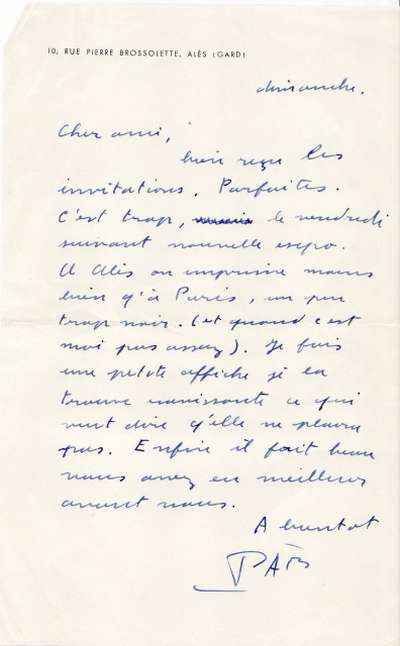 10, RUE PIERRE BROSSOLETTE, ALÈS (GARD)
dimanche.
Cher ami,
bien reçu les
invitations. Parfaites.
C'est trop, le vendredi
suivant nouvelle expo.
A Alès on imprime moins
bien q'à Paris, un peu
trop noir. (et quand c'est
moi pas assez). Je fais
une petite affiche je la
trouve ravissante ce qui
veut dire q'elle ne plaira
pas. Enfin il fait beau
vous avez eu meilleur
avant nous.
A bientot
PAB